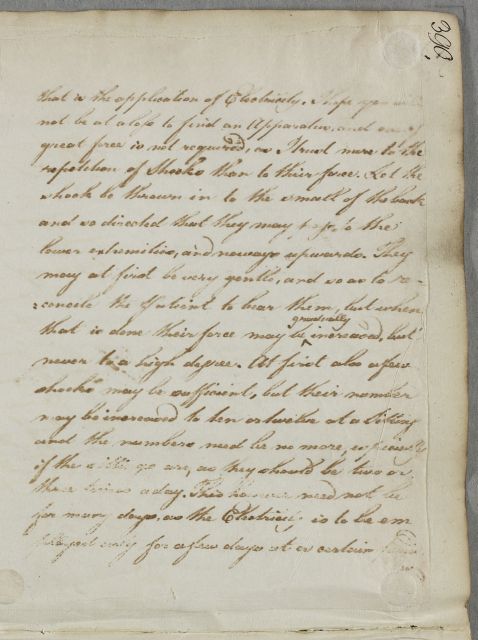 390.
that is the application of Electricity. I hope you will
not be at a loss to find an Apparatus, and one of
great force is not required, as I trust more to the
repetition of Shocks than to their force. Let the
shock be thrown in to the small of the back
and so directed that they may pass to the
lower extremities, and noways upwards. They
may at first be very gentle, and so as to re-
=concile the Patient to bear them, but when
that is done their force may be gradually increased, but
never to a high degree. At first also a few
shocks may be sufficient, but their number
may be increased to ten or twelve at a Sitting
and the numbers need be no more, especially
if the sittings are, as they should be two or
three times a day. This however need not be
for many days, as the Electricity is to be em
ployed only for a few days at a certain